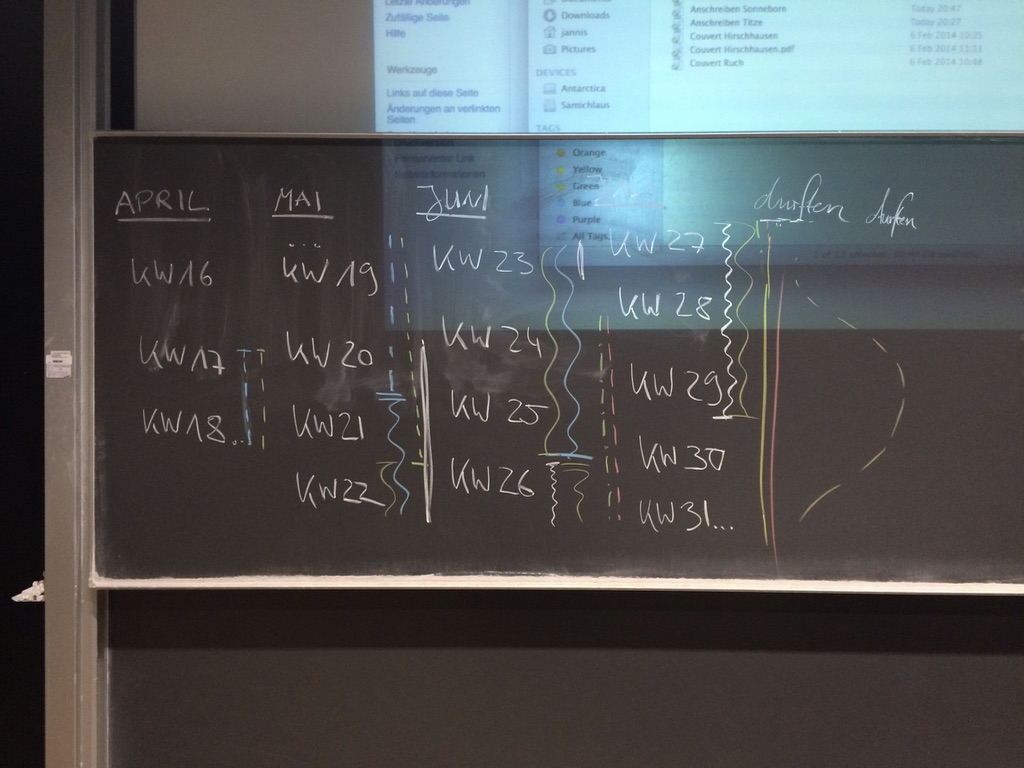 Zufällige Seite
Hilfe
Werkzeuge
Links auf diese Seite
Änderungen an verlinkten
Seiten
Permanenter Link
Downloads
jannis
Pictures
DEVICES
Antarctica
Samichlaus
TAGS
Orange
Yellow
Green
Blue
Purple
All Tags...
Anschreiben Sonneborn Today 20:47
Anschreiben Titze Today 20:27
Couvert Hirschhausen 6 Feb 2014 10:35
Couvert Hirschhausen.pdf 6 Feb 2014 11:11
Couvert Ruch 6 Feb 2014 10:48
APRIL
KW16
KW17
KW18...
MAI
...
KW 19
KW 20
KW21
KW22
JUNI
KW 23
KW 24
KW 25
KW 26
KW 27
KW 28
KW 29
KW 30
KW 31...
durften dürfen